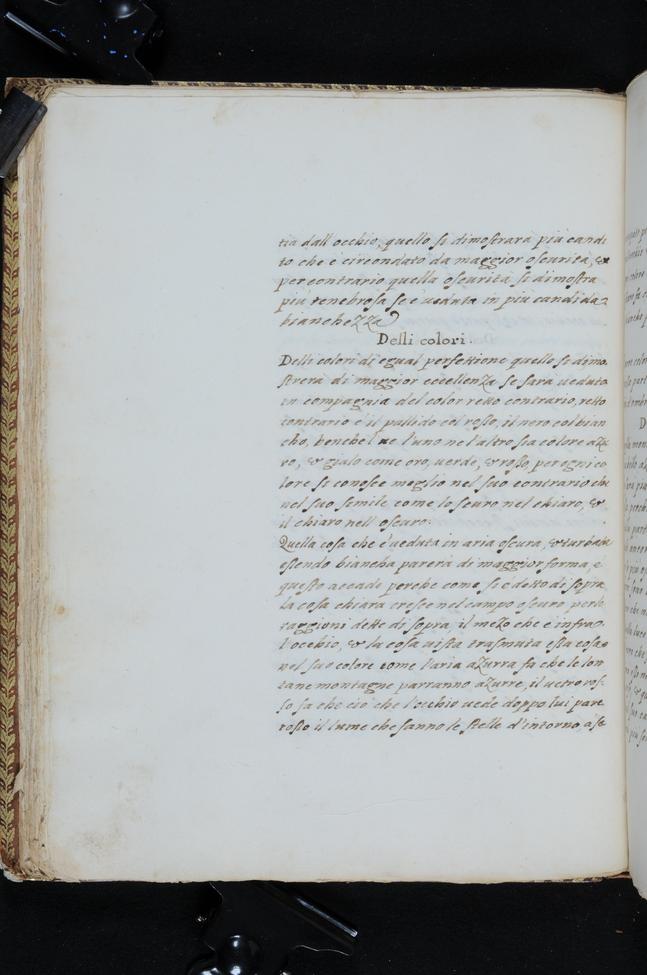 tia dall'occhio, quello si dimostrara piu candi
to che è circondato, da maggior oscurità, &
per contrario quella oscurità si dimostra
piu tenebrosa se è ueduta in piu candida
bianchezza
Delli colori.
Delli colori di egual perfettione quello si dimo
strerà di maggior eccellenza se sarà ueduto
in compagnia del color retto contrario, retto
contrario è il pallido col rosso, il nero col bian
cho, benche l'uno ne l'altro sia colore azu
ro, & gialo come oro, uerde, & rosso, per ogni co
lore si conosce meglio nel suo contrario che
nel suo simile come lo scuro nel chiaro, &
il chiaro nell'oscuro.
Quella cosa che è ueduta in aria oscura, & turbida
essendo biancha parera di maggior forma, e
questo accade perche come si è detto di sopra
la cosa chiara cresce nel campo oscuro, per le
raggioni dette di sopra, il mezo che è infra
l'occhio, & la cosa uista trasmuta essa cosa
nel suo colore come l'aria azurra fa che le lon
tane montagne parranno azurre, il uetro ros
so fa che ciò che l'occhio uede doppo lui pare
rosso il lume che fanno le stelle d'intorno a se